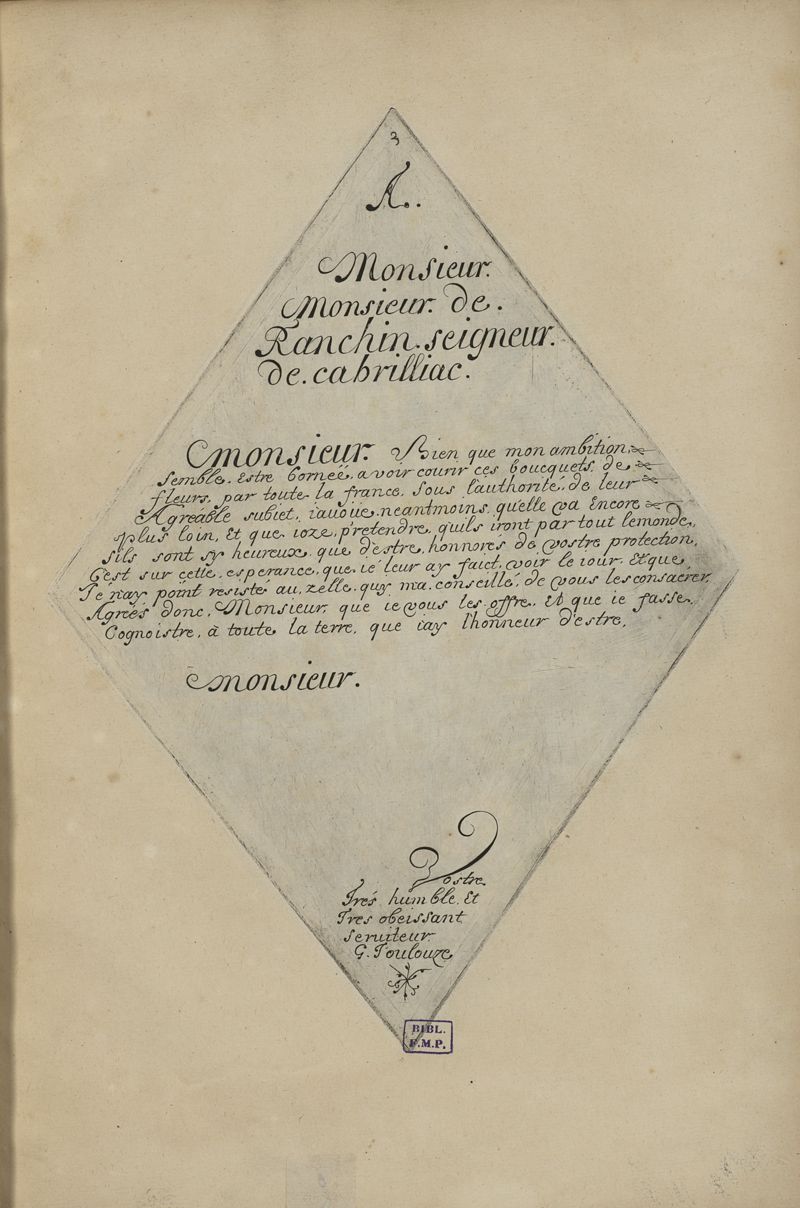 3
A.
Monsieur.
Monsieur. de.
Ranchin. seigneur.
de. cabrilliac.
monsieur. Bien que mon ambition,
semble. Estre borneé. avoir courir ces boucquets. de
fleurs, par toute la france, sous l'authorite. de leur
Agreable subiet, i'auoüe. neantmoins. qu'elle va Encore
plus loin, Et que ioze, pretendre, quils iront par tout lemonde,
sils sont sy heureux, que d'estre, honnores de vostre protection,
C'est sur cette. esperance, que ie leur ay faict, voir le iour. Et que,
Je n'ay point resisté au, zelle, quy m'a. conseillé, de vous lesconsacrer.
Agreés donc, Monsieur, que ie vous les offre, Et que ie fasse,
Cognoistre, à toute la terre, que i'ay l'honneur d'estre,
monsieur.
Vostre.
Trés humble. Et
Tres obeissant
seruiteur
G. Toulouze
BIBL.
F.M.P.